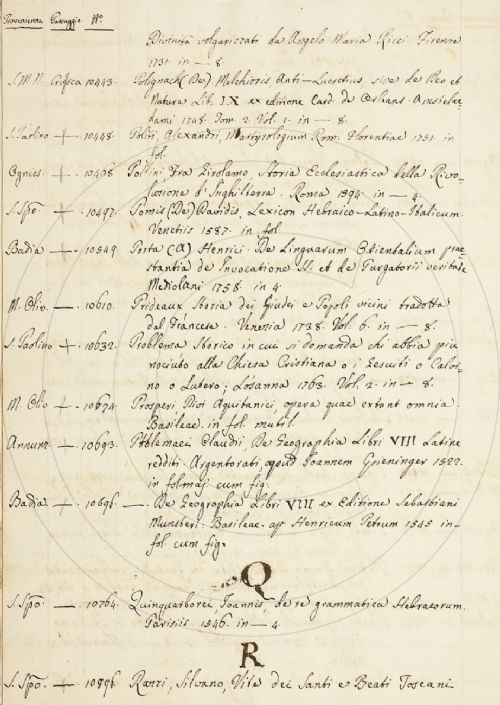 Provenienza Passaggio Nº
Divinità volgarizzati da Angelo Maria Ricci. Firenze
1731. in — 8.
S. M. N. Crusca 10443. Polignach (De) Melchioris Anti-Lucretius sive de Deo et
Natura Lib. IX ex editione Card. de Orleans Amstelae
dami 1748. Tom. 2. Vol. 1. in — 8.
S. Paolino + 10448. Politi, Alexandri, Martyrologium Rom. Florentiae 1751. in
fol.
Ogniss. + 10468 Pollini Fra Girolamo, Storia Ecclesiastica della Rivo-
luzione d'Inghilterra. Roma 1594. in — 4.
S. Spo. + 10497. Pomis (De) Davidis, Lexicon Hebraico-Latino-Italicum.
Venetiis 1587. in fol.
Badia + 10549. Porta (A) Henrici. De Linguarum Orientalium prae-
stantia de Invocatione SS. et de Purgatorii veritate
Mediolani 1758. in 4.
M. Oliv. — 10610. Prideaux Storia dei Giudei e Popoli vicini tradotta
dal Francese. Venezia 1738. Vol. 6. in — 8.
S. Paolino + 10632. Problema Storico in cui si demanda chi abbia piu
nociuto alla Chiesa Cristiana o i Gesuiti o Calvi-
no o Lutero; Losanna 1763. Vol. 2. in — 8.
M. Oliv + 10674. Prosperi Divi Aquitanici, opera quae extant omnia.
Basileae. in fol. mutil.
Annunz. — 10693. Ptolemaei Claudii, De Geographia Libri VIII Latine
redditi. Argentorati, apud Joannem Grieninger 1522.
in fol. maj. cum fig.
Badia + 10696. —. De Geographia Libri VIII ex Editione Sebastiani
Munsteri: Basileae. ap. Henricum Petrum 1545 in-
fol. cum fig.
Q
S. Spo. — 10764. Quinquarborei, Joannis, de re grammatica Hebraeorum.
Parisiis 1546. in — 4.
R
S. Spo. + 10896. Razzi, Silvano, Vite dei Santi e Beati Toscani